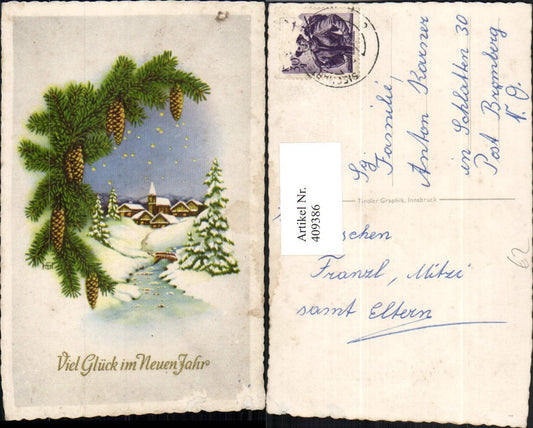 Viel Glück im Neuen Jahr
Sg
Familie
Anton Karner
in Schlatten 30
Post Bromberg
N. Ö.
Tiroler Graphik, Innsbruck
Artikel Nr.
409386
Franzl, Mitzi
samt Eltern
62